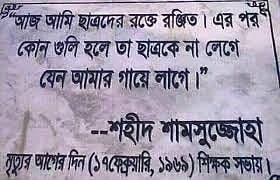 "আজ আমি ছাত্রদের রক্তে রঞ্জিত। এর পর
কোন গুলি হলে তা ছাত্রকে না লেগে
যেন আমার গায়ে লাগে।"
--শহীদ শামসুজ্জোহা
মৃত্যুর আগের দিন (১৭ফেব্রুয়ারি, ১৯৬৯) শিক্ষক সভায়।